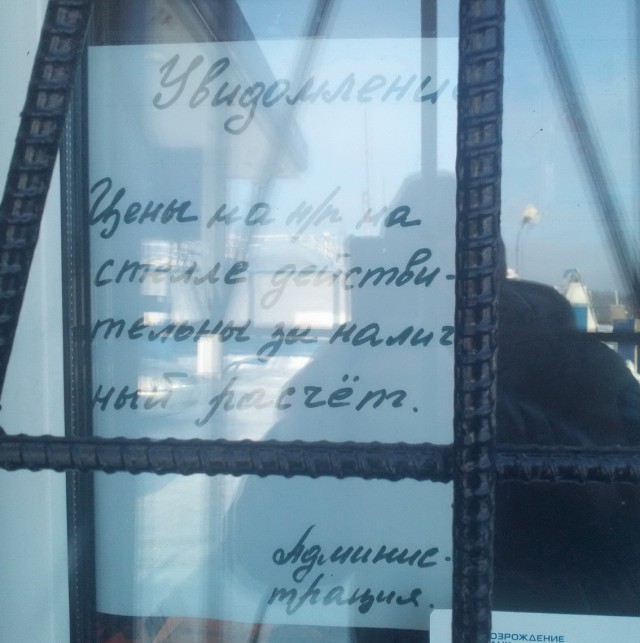 Уведомлени
Цены на н/п на
стелле действи-
тельны за налич
ный расчёт.
Админис-
трация.
ОЗРОЖДЕНИЕ